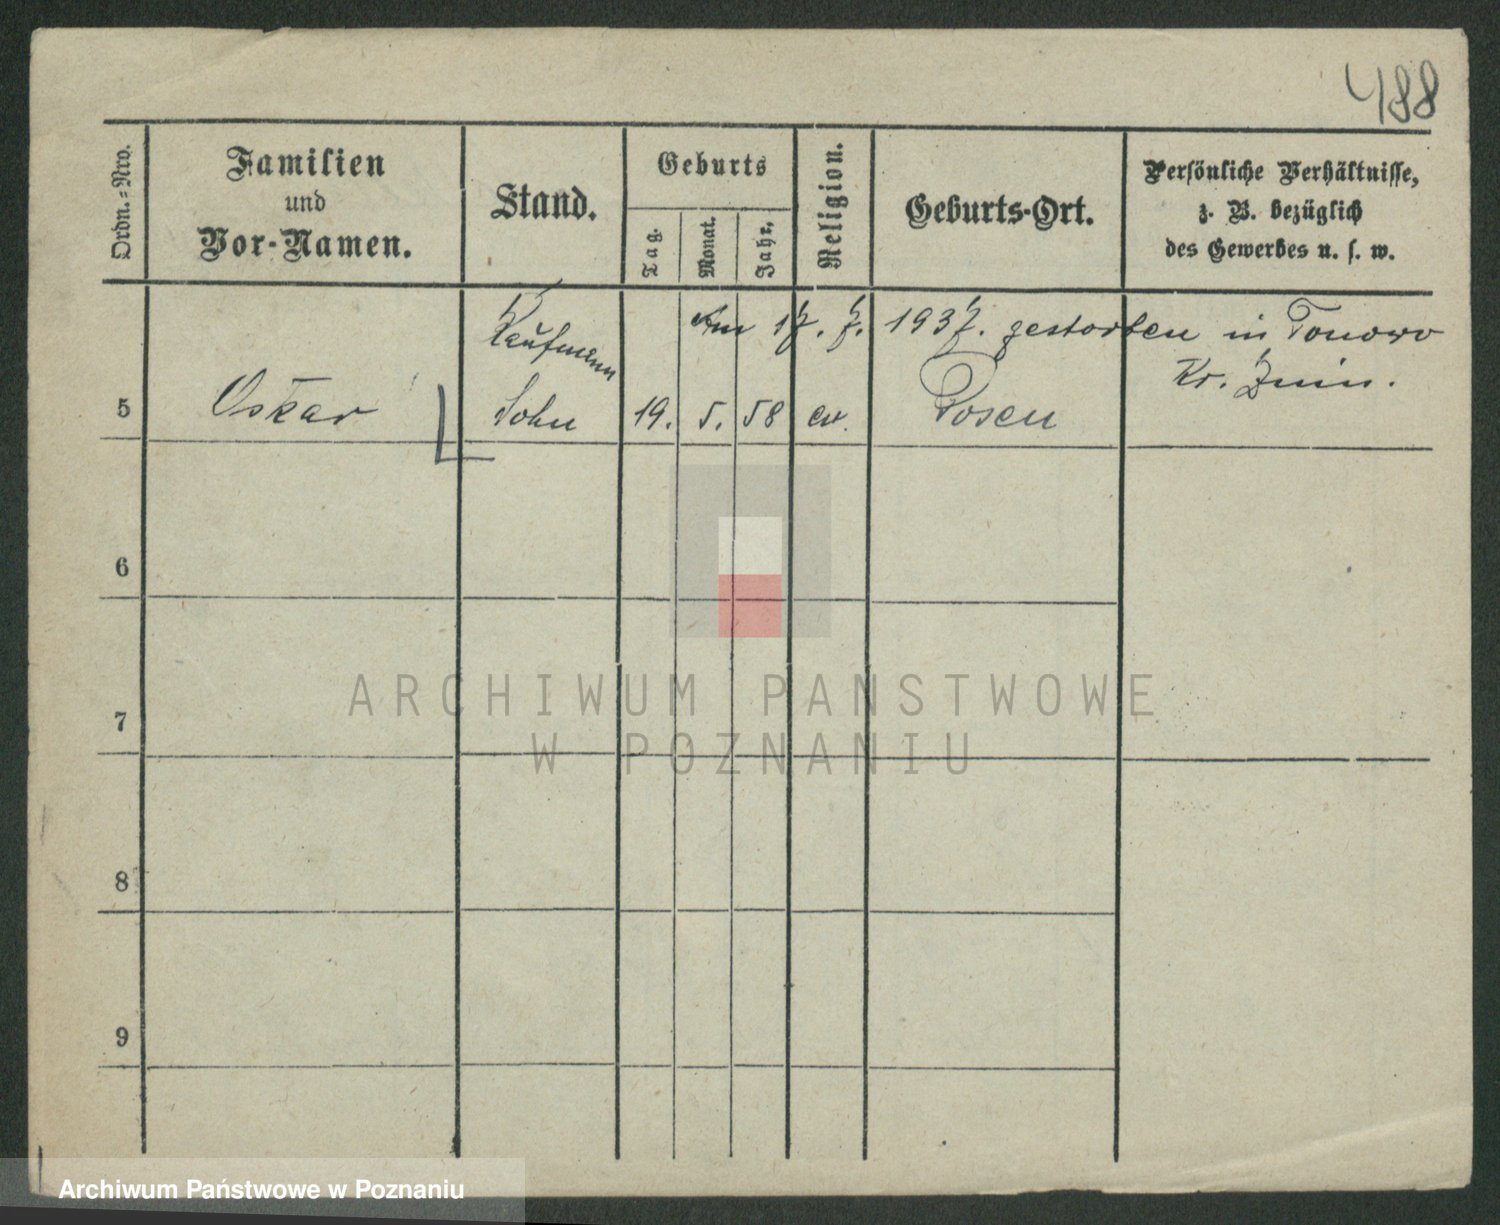 488
Ordn.-Nro.
Familien
und
Vor-Namen.
Stand.
Geburts
Tag.
Monat.
Jahr.
Religion.
Geburts-Ort.
Persönliche Verhältnisse,
z. B. bezüglich
des Gewerbes u. s. w.
Kaufmann
Am 17. 7. 1937. gestorben in Tonowo
Kr. Znin.
5 Oskar Sohn 19. 5. 58 ev. Posen
6
7
8
9
ARCHIWUM PAŃSTWOWE
W POZNANIU
Archiwum Państwowe w Poznaniu